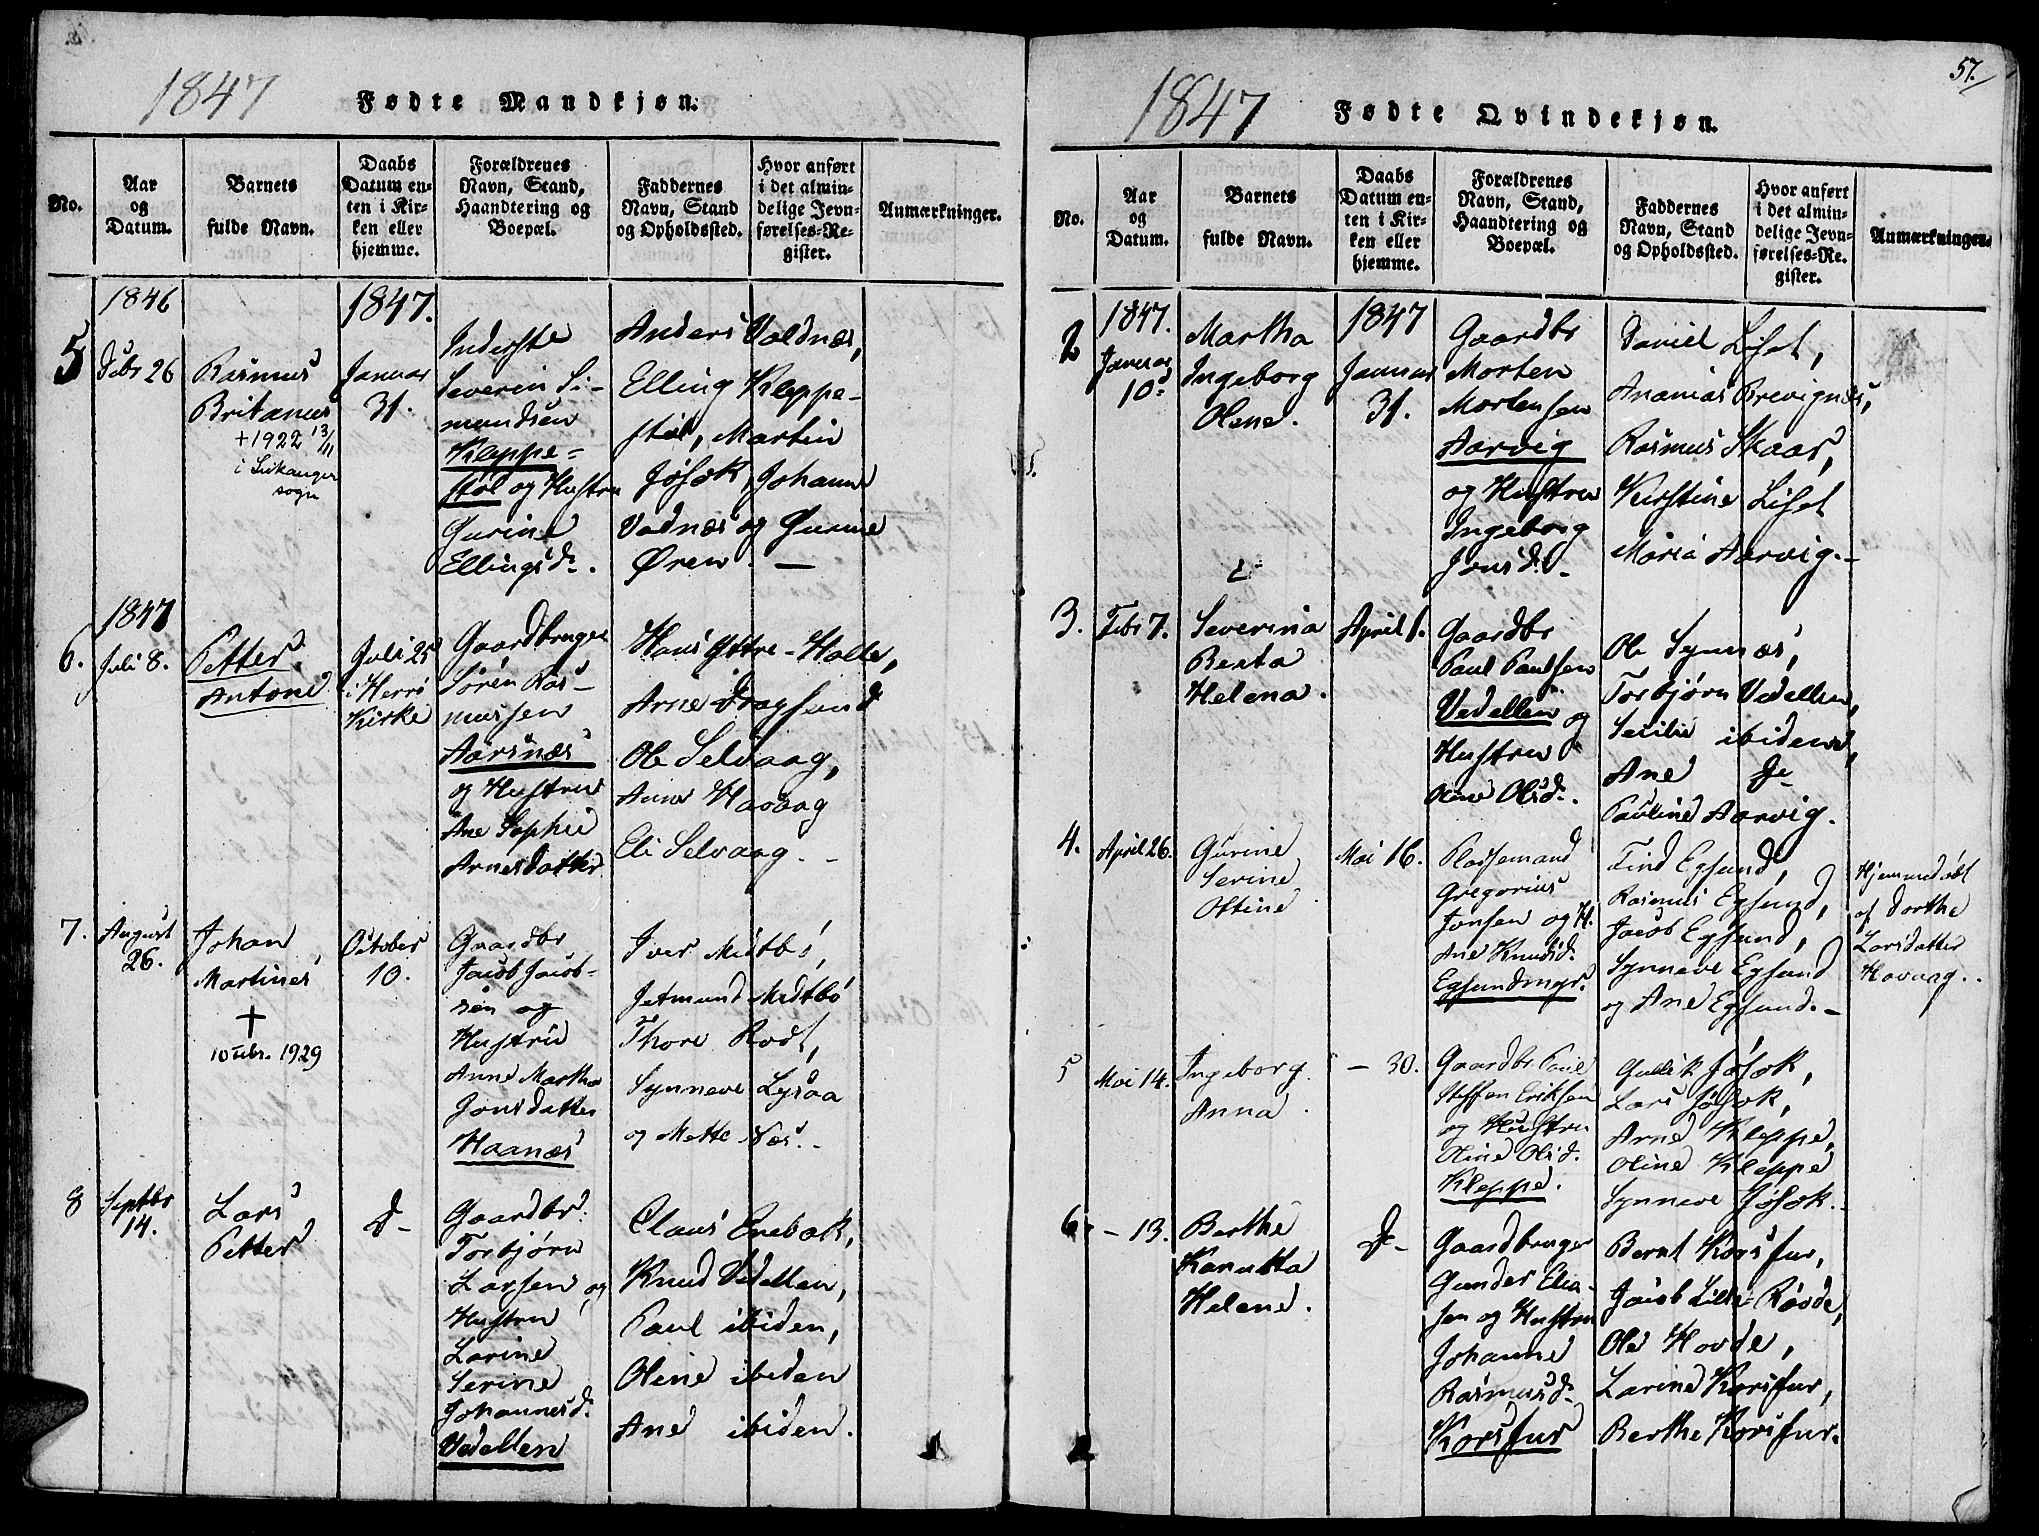 1847
Fødte Mandkjøn.
No.
Aar
og
Datum.
Barnets
fulde Navn.
Daabs
Datum en-
ten i Kir-
ken eller
hjemme.
Forældrenes
Navn, Stand,
Haandtering og
Boepæl.
Faddernes
Navn, Stand
og Opholdssted.
Hvor anført
i det almin-
delige Jevn-
førelses-Re-
gister.
Anmærkninger.
5
1846
Decbr 26
Rasmus
Britanus
+1922 13/11
i Leikanger
sogn
1847.
Januar
31.
Inderste
Severin Si-
mundsen
Kleppe-
støl og Hustru
Gurine
Ellingsd.
Anders Valdnæs,
Elling Kleppe-
støl, Martin
Jøsok, Johanne
Vadnæs og Gurine
Øren. —
6.
1847
Juli 8.
Petter
Antone
Juli 25
i Herrø
Kirke
Gaardbruger
Søren Ras-
mussen
Aarsnæs
og Hustrue
Ane Sophie
Arnesdatter
Hans Yttre-Holle,
Arne Dragsund
Ole Selvaag,
Anne Havaag
Eli Selvaag. -
7.
August
26.
Johan
Martines
+
10 Febr. 1929
October
10.
Gaardbr
Jacob Jacob-
sen og
Hustrue
Anne Martha
Jonsdatter
Haanæs
Iver Midtbø,
Jetmund Midtbø
Thore Rodt,
Synneve Lysaa
og Mette Næs. -
8
Septbr
14.
Lars
Petter
Do-
Gaardbr.
Torbjørn
Larsen og
Hustru
Larine
Serine
Johannesd.
Vedellen
Claus Enebak,
Knud Vedellen,
Paul ibiden,
Oline ibiden
Ane ibiden.
57.
1847
Fødte Qvindekjøn.
No.
Aar
og
Datum.
Barnets
fulde Navn.
Daabs
Datum en-
ten i Kir-
ken eller
hjemme.
Forældrenes
Navn, Stand,
Haandtering og
Boepæl.
Faddernes
Navn, Stand
og Opholdssted.
Hvor anført
i det almin-
delige Jevn-
førelses-Re-
gister.
Anmærkninger.
2
1847.
Januar
10.
Martha
Ingeborg
Olene.
1847
Januar
31.
Gaardbr
Morten
Mortensen
Aarvig
og Hustrue
Ingeborg
Jonsd. -
Daniel Liset,
Ananias Brevignæs,
Rasmus Skaar,
Kirstine Liset
Maria Aarvig. -
3.
Febr 7.
Severina
Berta
Helena.
April 1.
Gaardbr
Paul Paulsen
Vedellen og
Hustrue
Oline Olsd.
Ole Synnæs,
Torbjørn Vedellen,
Secilie ibidem,
Ane Do
Pauline Aarvig.
4.
April 26.
Gurine
Serine
Ottine
Mai 16.
Pladsemand
Gregorius
Jonsen og H.
Ane Knudsd.
Egsundmyr.
Find Egsund,
Rasmus Egsund,
Jacob Egsund,
Synneve Egsund
og Ane Egsund. -
Hjemmedøbt
af Dorthe
Larsdatter
Havaag.
5
Mai 14.
Ingeborg
Anna
— 30.
Gaardbr Paul
Steffen Eriksen
og Hustru
Oline Olsd.
Kleppe.
Gullik Jøsok,
Lars Jøsok,
Arne Kleppe,
Oline Kleppe
Synneve Jøsok.
6.
— 13.
Berthe
Kanutta
Helene.
Do-
Gaardbruger
Gunder Elia-
sen og Hustru
Johanne
Rasmusd.
Korsfur
Bernt Korsfur,
Jacob Lille-Røvde,
Ole Hovde,
Larine Korsfur,
Berthe Korsfur.